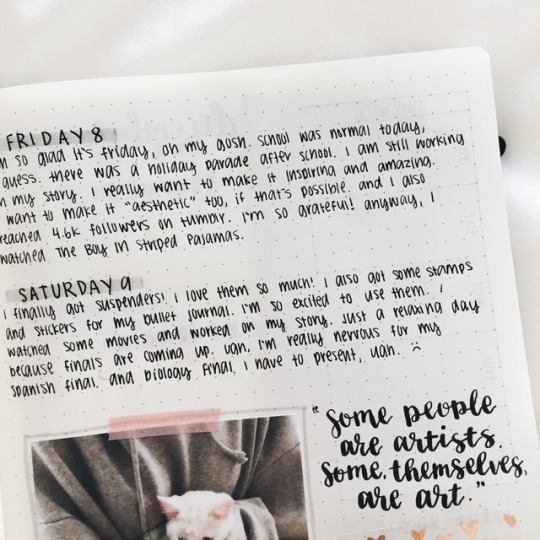 FRIDAY 8
m so glad it's friday, oh my gosh. school was normal today,
guess. there was a holiday parade after school. i am still working
n my story. i really want to make it inspiring and amazing.
want to make it "aesthetic" too, if that's possible. and i also
reached 4.6k followers on tumblr. i'm so grateful! anyway, i
watched The Boy in Striped Pajamas.
SATURDAY 9
i finally got suspenders! i love them so much! i also got some stamps
and stickers for my bullet journal. i'm so excited to use them. i
watched some movies and worked on my story. just a relaxing day
because finals are coming up. ugh, i'm really nervous for my
spanish final. and biology final, i have to present, ugh. :(
"some people
are artists.
some, themselves,
are art."